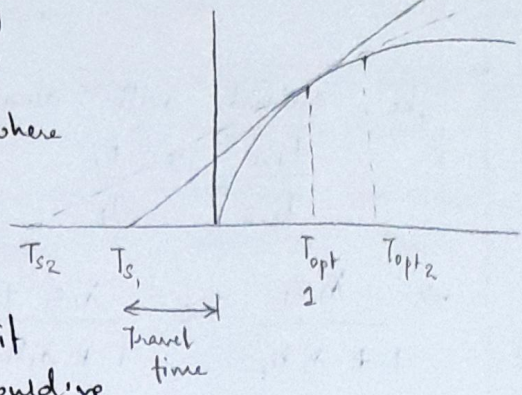 where
T_s2 T_s1 T_opt 1 T_opt2
Travel
time
it